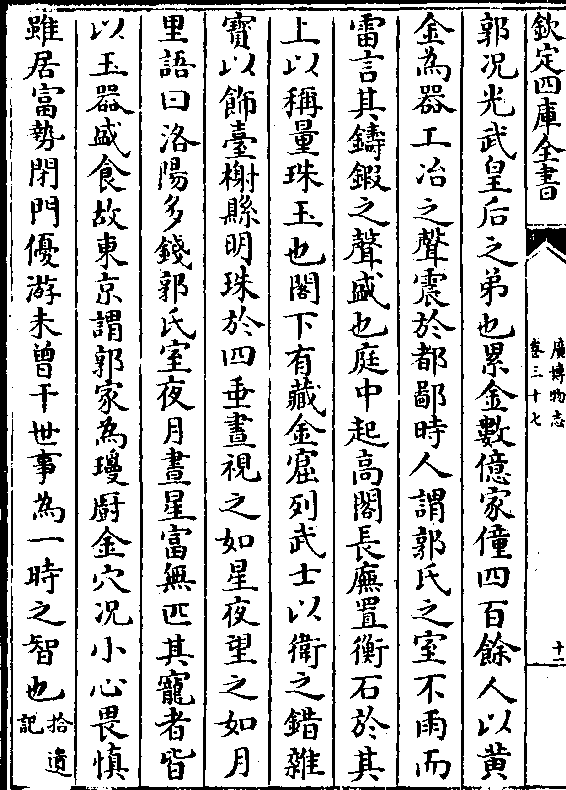 欽定四庫全書
廣博物志
卷三十七
十二
郭况光武皇后之弟也累金數億家僮四百餘人以黄
金為器工冶之聲震於都鄙時人謂郭氏之室不雨而
雷言其鑄鍜之聲盛也庭中起高閣長廡置衡石於其
上以稱量珠玉也閣下有藏金窟列武士以衛之錯雜
寶以飾臺榭縣明珠於四垂晝視之如星夜望之如月
里語曰洛陽多錢郭氏室夜月晝星富無匹其寵者皆
以玉器盛食故東京謂郭家為瓊廚金穴况小心畏慎
雖居富勢閉門優游未曾干世事為一時之智也拾遺
記